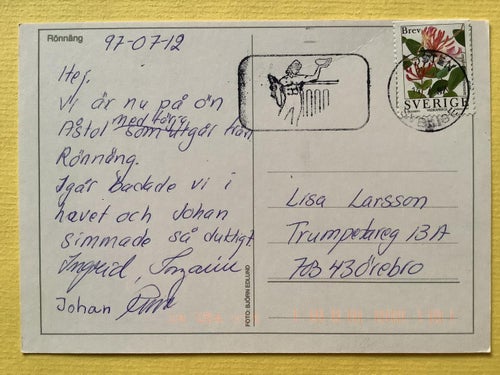 Rönnäng
97-07-12
Hej.
Vi är nu på ön
Åstol med färja som utgår från
Rönnäng.
Igår badade vi i
havet och Johan
simmade så duktigt
Ingrid,
Johan
FOTO: BJÖRN EDLUND
Brev
SVERIGE
Lisa Larsson
Trumpetareg 13A
703 43 Örebro